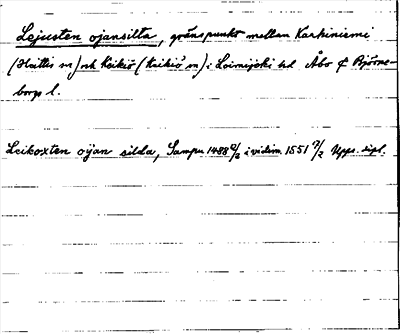 Lejusten ojansilta, gränspunkt mellan Karkiniemi
(Haitis m) och Keikiö (Keikiö m) i Loimijoki hd Åbo & Björne-
borgs l.
Leikoxten oijan silda, Sampu 1488 6/6 i vidim. 1551 7/2 Upps. dipl.